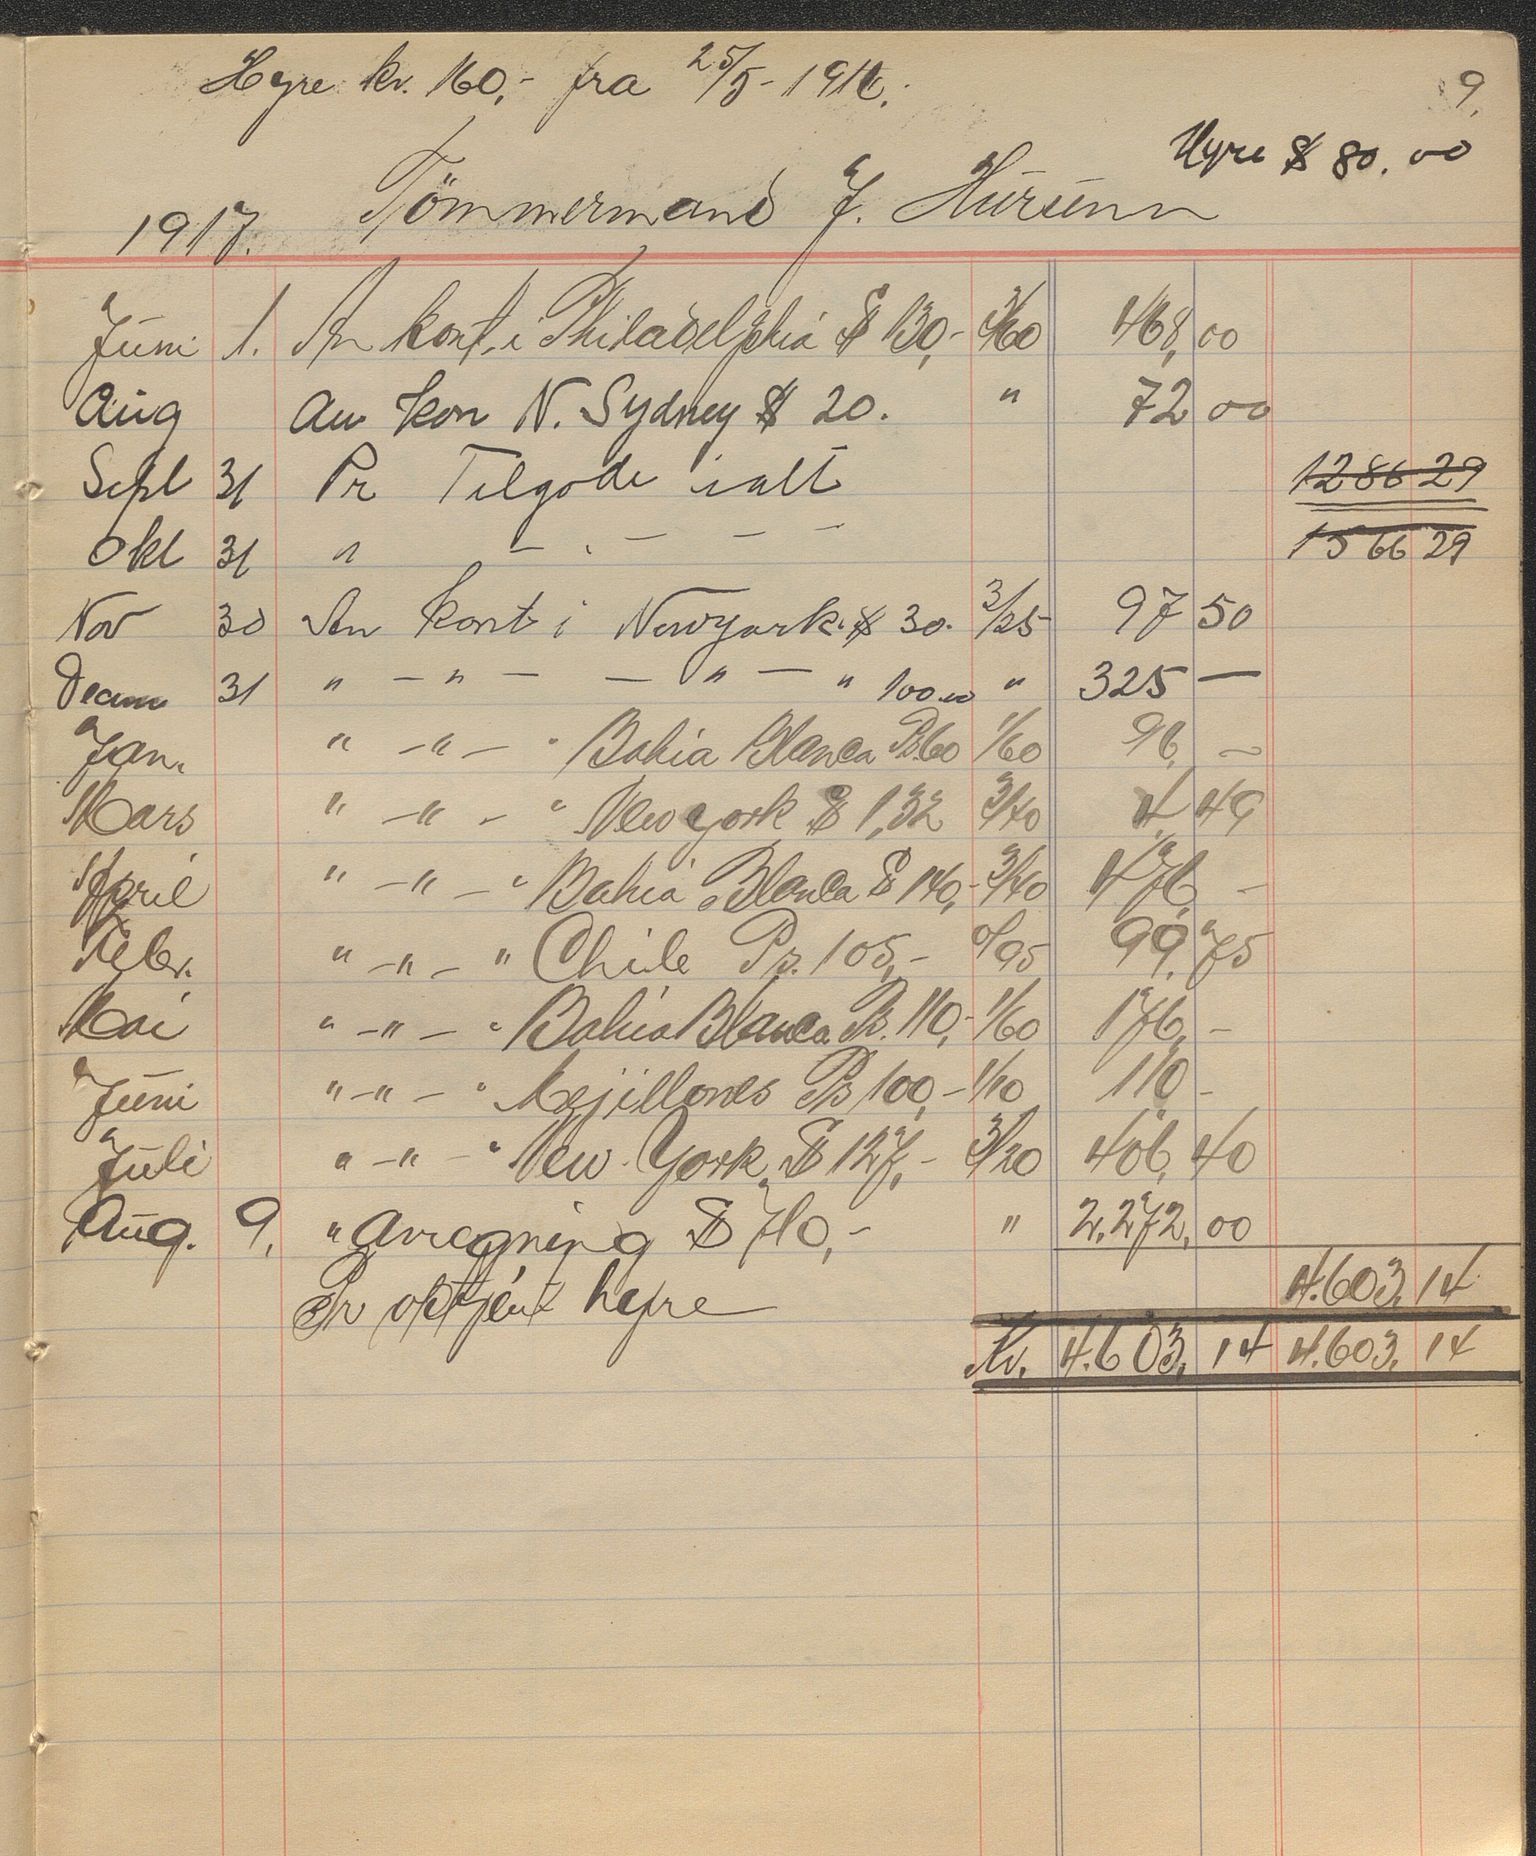 Hyre kr. 160,- fra 25/5-1916.
9.
Hyre $ 80.00
1917. Tömmermand J. Hürünn
Juni 1. An kont. i Philadelphia $ 130,- 3/60 468,00
Aug An kon N. Sydney $ 20. " 72 00
Sept 31 Pr Tilgode ialt 1286 29
Okt 31 " - - - - 1566 29
Nov 30 An kont i Newyork $ 30. 3/25 97 50
Decem 31 " - " - - " - " 100.00 " 325 -
Jan. " - " - " Bahia Blanca Ps.60 1/60 96, -
Mars " - " - " New york $ 1,32 3/40 4, 49
April " - " - " Bahia Blanca $ 140,- 3/40 476, -
Febr. " - " - " Chile Ps. 105,- 0/95 99,75
Mai " - " - " Bahia Blanca Ps. 110,- 1/60 176, -
Juni " - " - " Mejillones Ps 100,- 1/10 110, -
Juli " - " - " New York. $ 127,- 3/20 406,40
Aug. 9, " Avregning $ 710,- " 2.272,00
Pr optjent hyre 4.603,14
Kr. 4.603,14 4.603,14